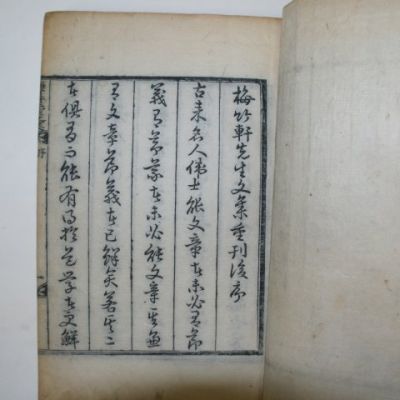 梅竹軒先生文集重刊後序
古來名人偉士能文章者未必有節
義有節義者未必能文章其兼
有文章節義者已鮮矣若其二
者俱有而能有得於道學者更鮮